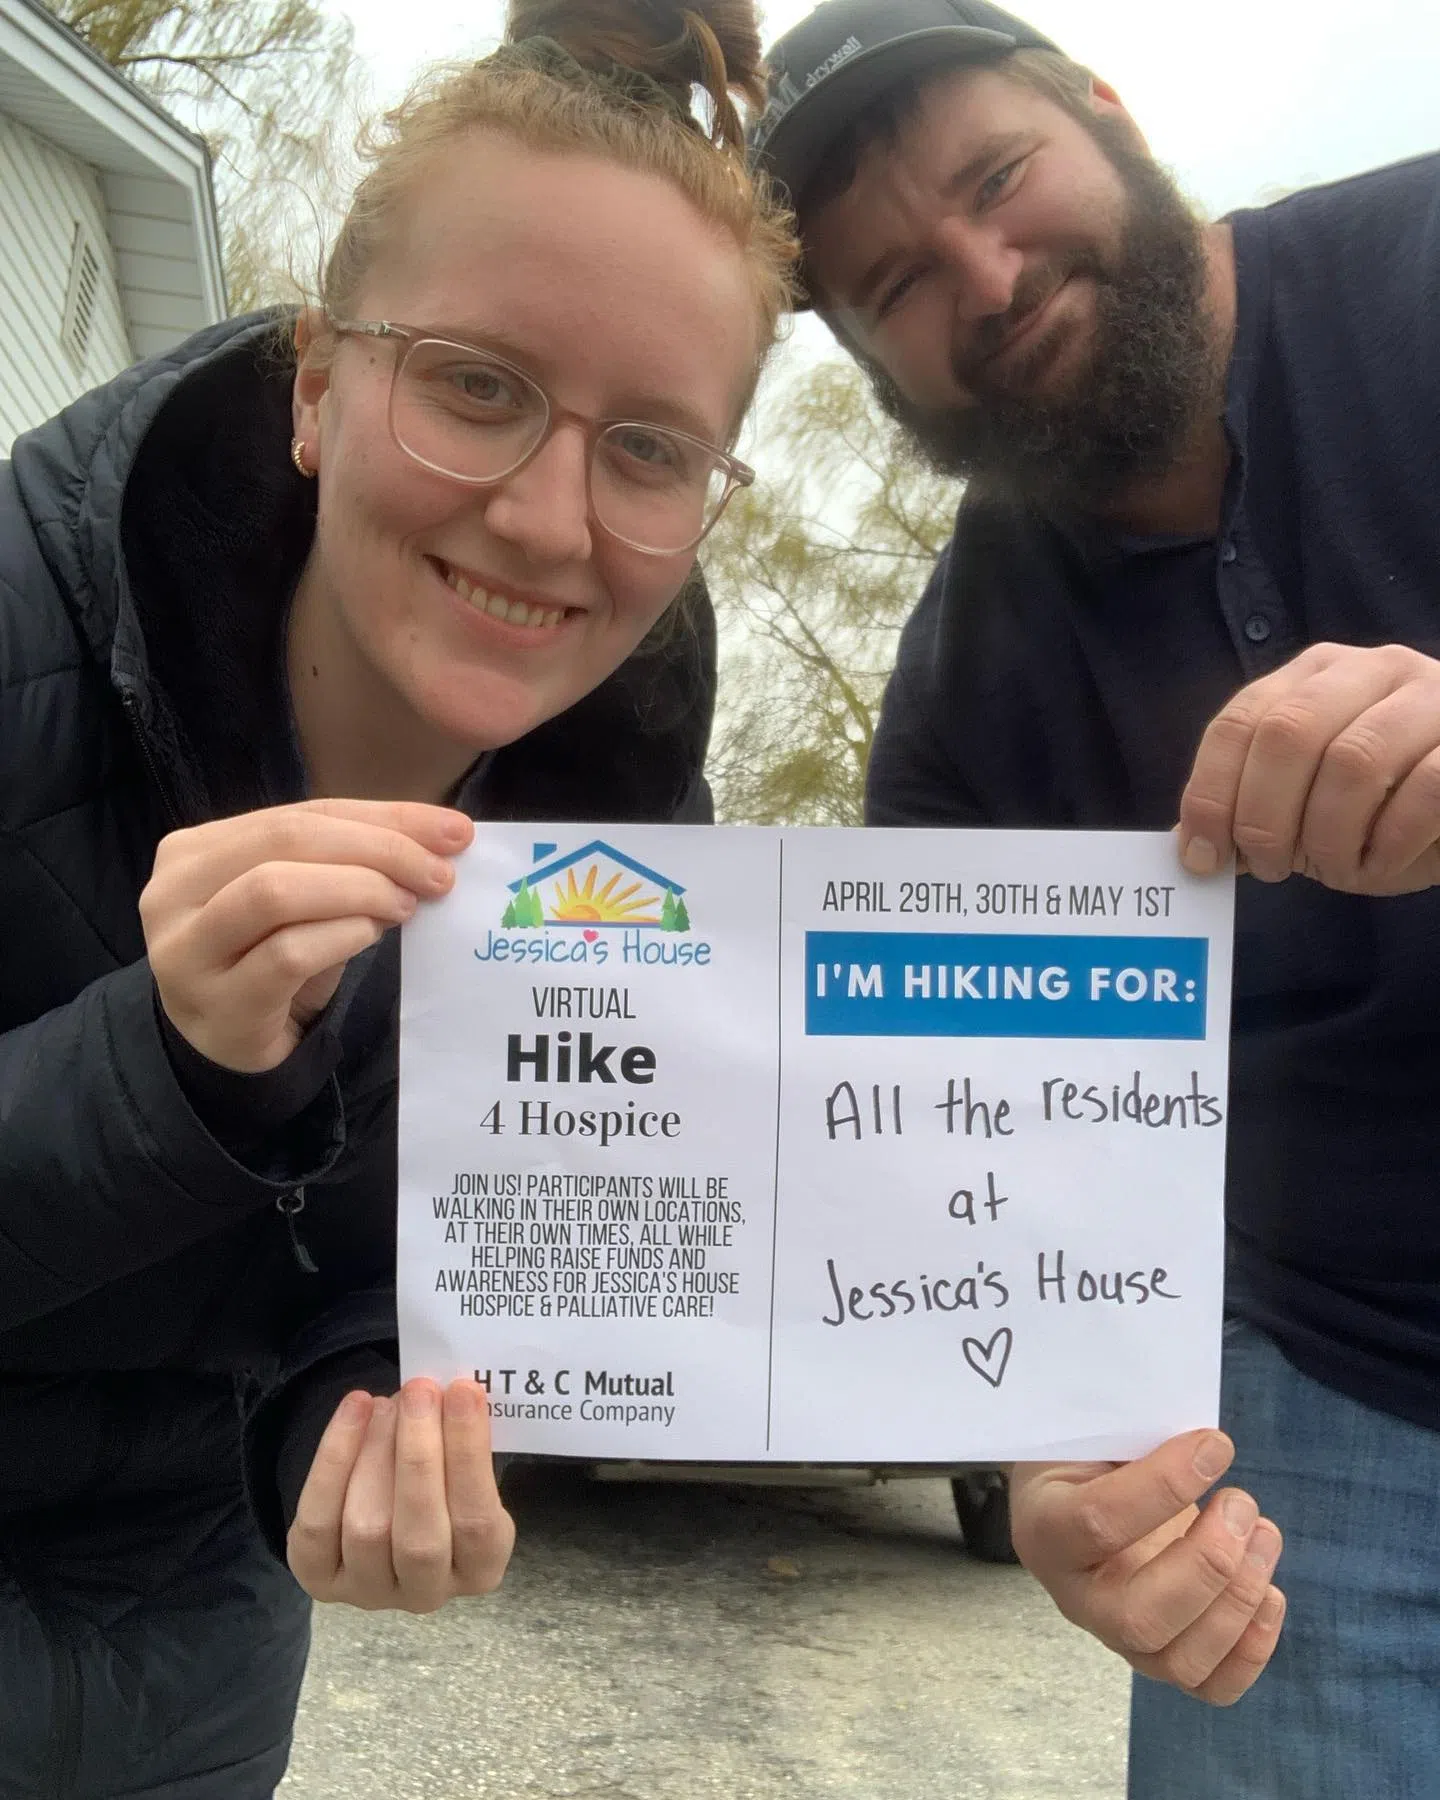 drywall
Jessica's House
VIRTUAL
Hike
4 Hospice
JOIN US! PARTICIPANTS WILL BE
WALKING IN THEIR OWN LOCATIONS,
AT THEIR OWN TIMES, ALL WHILE
HELPING RAISE FUNDS AND
AWARENESS FOR JESSICA'S HOUSE
HOSPICE & PALLIATIVE CARE!
H T & C Mutual
nsurance Company
APRIL 29TH, 30TH & MAY 1ST
I'M HIKING FOR:
All the residents
at
Jessica's House